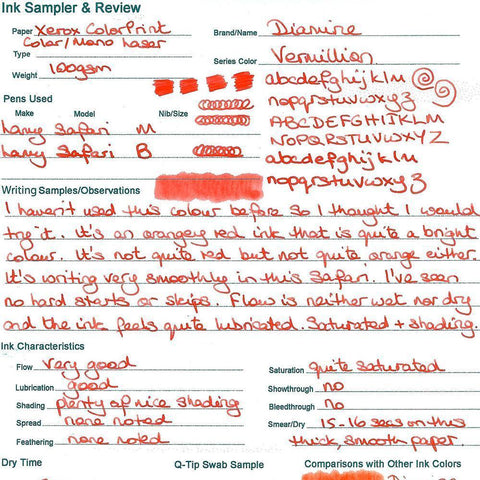 Ink Sampler & Review
Paper Xerox ColorPrint
Color/Mono Laser
Type
Weight 100gsm
Brand/Name Diamine
Series Color Vermillion
abcdefghijklm
nopqrstuvwxyz
ABCDEFGHIJKLM
NOPQRSTUVWXYZ
abcdefghijklm
nopqrstuvwxyz
Pens Used
Make Model Nib/Size
Lamy Safari M
Lamy Safari B
Writing Samples/Observations
I haven't used this colour before so I thought I would
try it. It's an orangey red ink that is quite a bright
colour. It's not quite red but not quite orange either.
It's writing very smoothly in this Safari. I've seen
no hard starts or skips. Flow is neither wet nor dry
and the ink feels quite lubricated. Saturated + shading.
Ink Characteristics
Flow Very good
Lubrication good
Shading plenty of nice shading
Spread none noted
Feathering none noted
Saturation quite saturated
Showthrough no
Bleedthrough no
Smear/Dry 15-16 secs on this
thick, smooth paper.
Dry Time
Q-Tip Swab Sample
Comparisons with Other Ink Colors